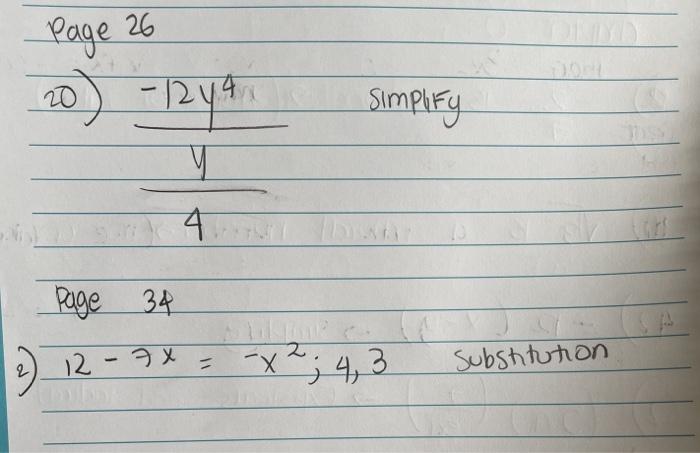 Page 26
20) -12y⁴ Simplify
y
4
Page 34
2) 12 - 7x = -x²; 4,3 Substitution